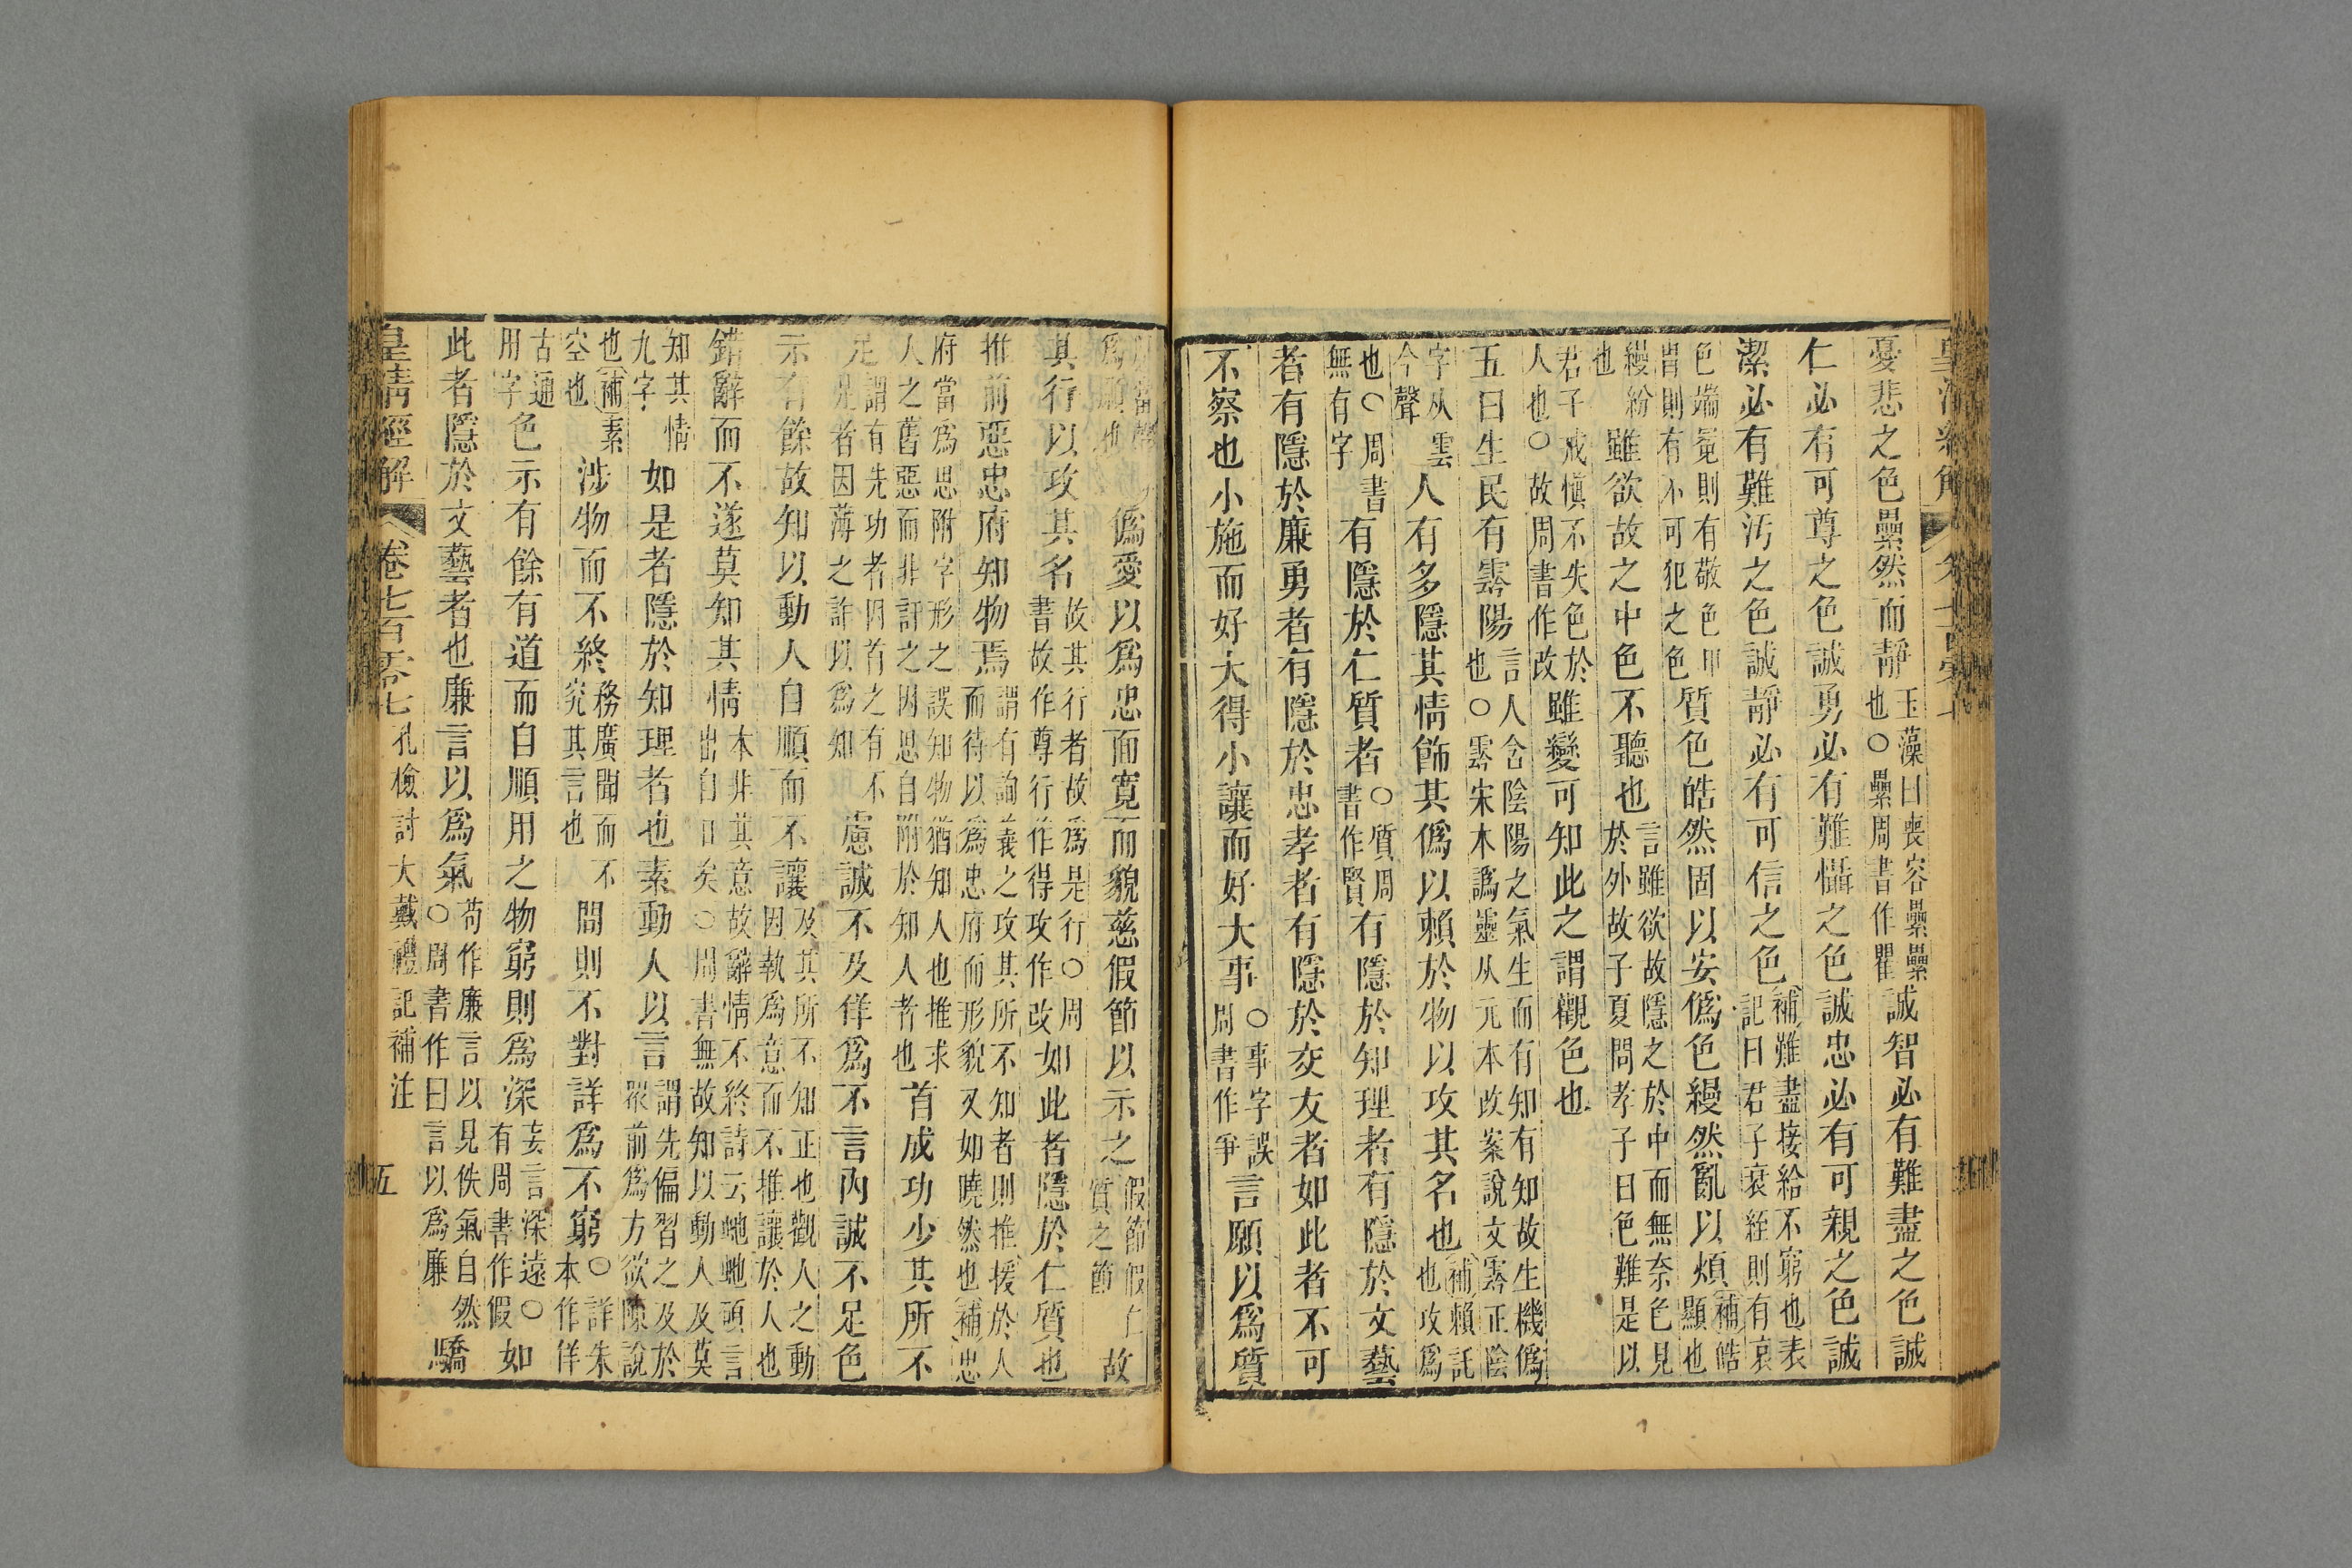 憂悲之色纍然而靜玉藻曰喪容纍纍也○纍周書作瞿誠智必有難盡之色誠
仁必有可尊之色誠勇必有難懾之色誠忠必有可親之色誠
潔必有難汚之色誠靜必有可信之色補難盡接給不窮也表記曰君子衰絰則有哀
色端冕則有敬色甲冑則有不可犯之色質色皓然固以安僞色縵然亂以煩補皓顯也
縵紛也雖欲故之中色不聽也言雖欲故隱之於中而無奈色見於外故子夏問孝子曰色難是以
君子戒愼不失色於人也○故周書作改雖變可知此之謂觀色也
五曰生民有霒陽言人含陰陽之氣生而有知有知故生機僞也○霒宋本譌靈从元本改案說文霒正陰
字从雲今聲人有多隱其情飾其僞以賴於物以攻其名也補賴託也攻爲
也○周書無有字有隱於仁質者○質周書作賢有隱於知理者有隱於文藝
者有隱於廉勇者有隱於忠孝者有隱於交友者如此者不可
不察也小施而好大得小讓而好大事○事字誤周書作爭言願以爲質
爲願也僞愛以爲忠面寬而貌慈假節以示之假節假仁質之節故
其行以攻其名故其行者故爲是行○周書故作尊行作得攻作改如此者隱於仁質也
推前惡忠府知物焉謂有詢義之攻其所不知者則推援於人而待以爲忠府而形貌又如曉然也補忠
府當爲思附字形之誤知物猶知人也推求人之舊惡而非訂之因思自附於知人者也首成功少其所不
足謂有先功者因首之有不足者因薄之詐以爲知慮誠不及佯爲不言內誠不足色
示有餘故知以動人自順而不讓及其所不知正也觀人之動因執爲意而不推讓於人也
錯辭而不遂莫知其情本非其意故辭情不終詩云虵虵碩言出自口矣○周書無故知以動人及莫
知其情九字如是者隱於知理者也素動人以言謂先偏習之及於衆前爲方欲陳說
也補素空也涉物而不終務廣聞而不究其言也問則不對詳爲不窮○詳朱本作佯
古通用字色示有餘有道而自順用之物窮則爲深妄言深遠○有周書作假如
此者隱於文藝者也廉言以爲氣苟作廉言以見佚氣自然○周書作曰言以爲廉驕
皇淸經解 卷七百零七孔檢討大戴禮記補注 五